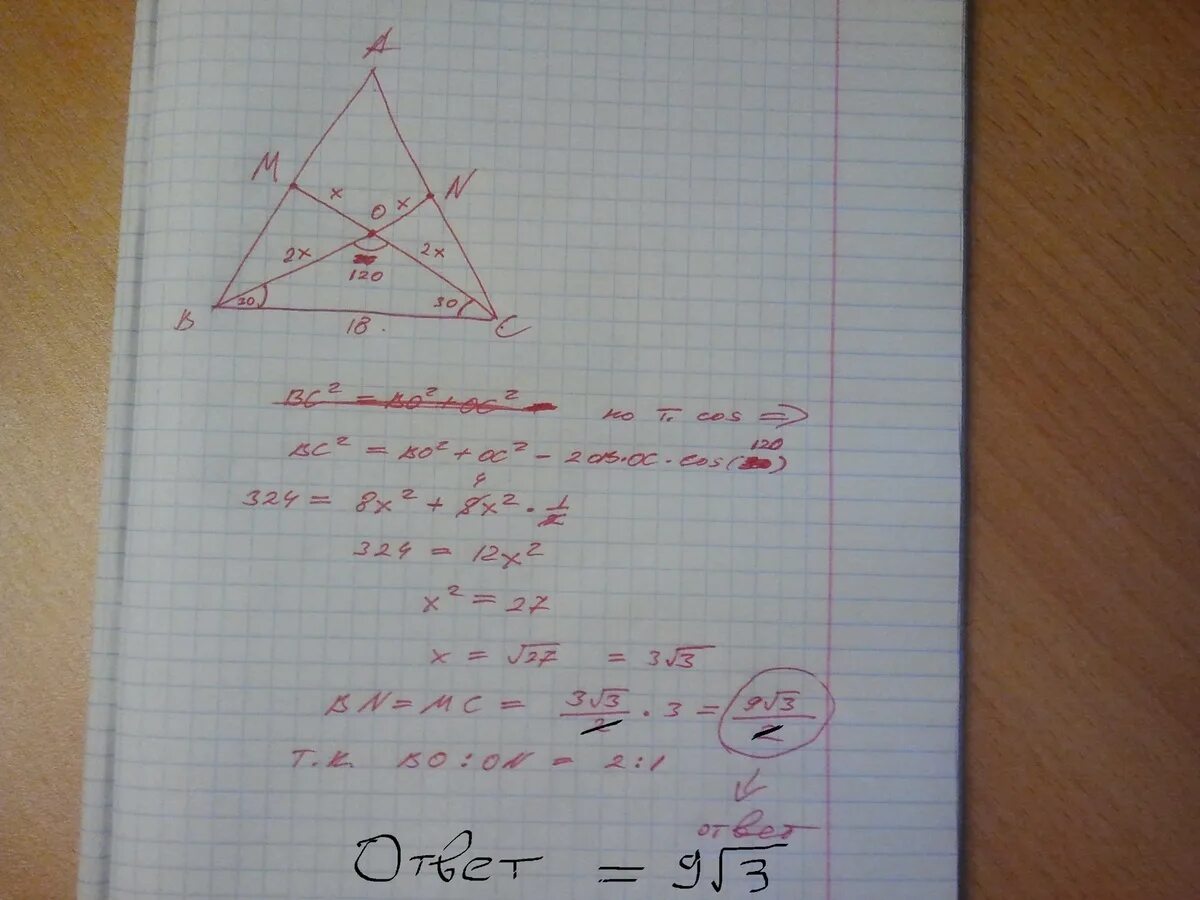 A
M x x N
O
2x 120 2x
30 30
B 18. C
BC² = BO² + OC²
по т. cos ⇒
BC² = BO² + OC² - 2OB·OC·cos(120)
324 = 8x² + 8x² · 1/2
4
324 = 12x²
x² = 27
x = √27 = 3√3
BN = MC = 3√3/2 · 3 = 9√3/2
Т.К. BO : ON = 2:1
ответ
Ответ = 9√3